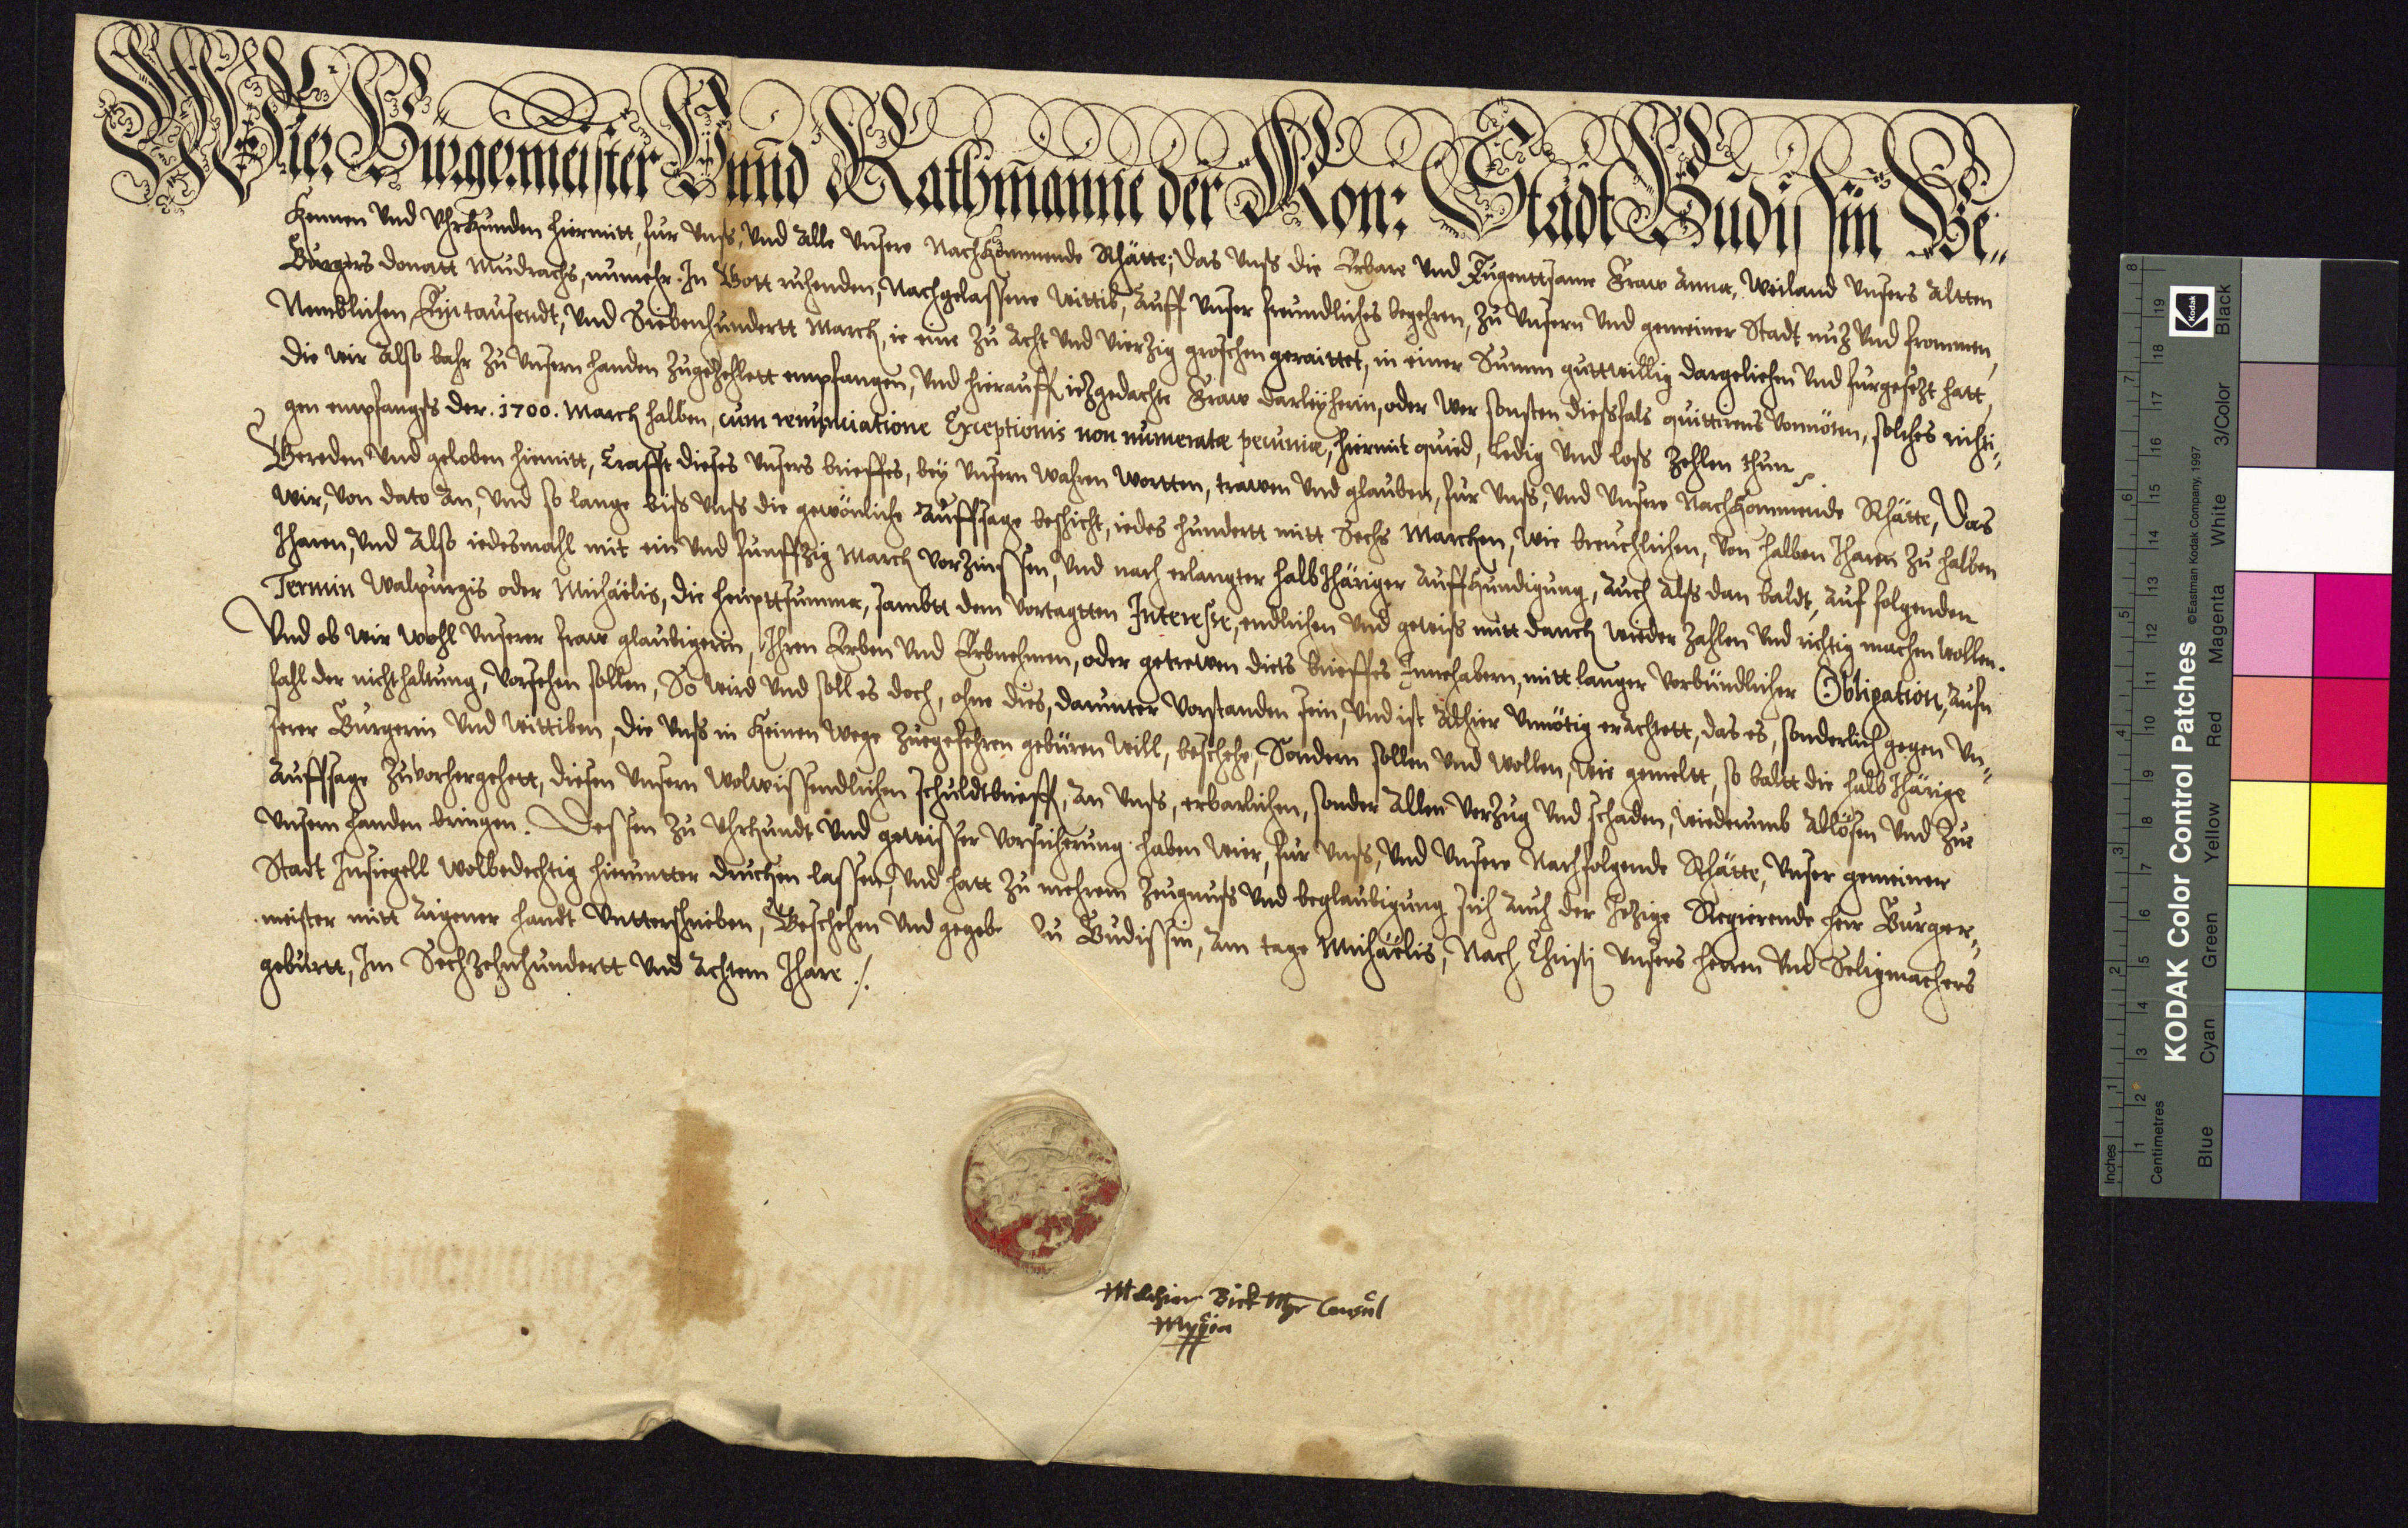 Wier Burgermeister Vnnd Rathmanne der Kön: Stadt Budissin Be„
Kennen Vnd Vhrkunden hiermitt, fur Vnß, Vnd Alle Vnsere Nachkommende Rhätte; das Vnß die Erbare Vnd Tugenttsame Fraw Anna, Weiland Vnsers Altten
Burgers Donatt Mudrachs, numehr. In Gott ruhenden, Nachgelassene Wittib, Auff Vnser freundliches begehren, zu Vnsern Vnd gemeiner Stadt nuz Vnd frommen,
Nemblichen, Eintausendt, Vnd Siebenhundertt March, ie eine zu Acht Vnd Vierzig groschen geraittet, in einer Summ guttwillig dargeliehen Vnd furgesezt hatt,
die wir Also bahr zu Vnsern handen zugezehlett empfangen, Vnd hierauff iezgedachte Fraw darleyherin, oder Wer sonsten dießfals quittirens Vonnöten, solches richti„
gen empfangß der. 1700. March halben, cum renunciatione Exceptionis non numeratæ pecuniæ, hiermit quied, ledig Vnd loß Zehlen thun
Gereden Vnd geloben hiemitt, Crafft dieses Vnsers brieffes, bey Vnsern Wahren Wortten, trawen Vnd glauben, fur Vnß, Vnd Vnsere Nachkommende Rhätte, Das
Wir, Von dato An, Vnd so lange biß Vnß die gewönliche Auffsage beschicht, iedes hundertt mitt Sechs Marchen, Wie breuchlichen, Von halben Iharen zu halben
Iharen, Vnd Also iedesmahl mit ein Vnd funffzig March Vorzinssen, Vnd nach erlangter halb Ihäriger Auffkundigung, Auch Alß dan baldt, Auf folgenden
Termin Walpurgis oder Michäelis, die heupttsumma, sambtt dem Vortagtten Interesse, endlichen Vnd gewiß mitt danch wieder Zahlen Vnd richtig machen Wollen.
Vnd ob Wir Wohl Vnserer fraw glaubigerin, Ihren Erben Vnd Erbnehmen, oder getrewen diets brieffes Innehabern, mitt langer Vorbündlicher Obligation, Aufn
fahl der nichthaltung, Vorsehen sollen, So Wird Vnd soll es doch, ohne dies, darunter Vorstanden sein, Vnd ist Alhier Vnnötig erAchtett, das es, sonderlich gegen Vn„
serer Burgerin Vnd Wittiben, die Vnß in Keinen Wege zuegefehren gebüren Will, beschehe, Sondern sollen Vnd Wollen, Wie gemeltt, so baltt die halb Ihärige
Auffsage zuvorhergehett, diesen Vnsern Wolwissendlichen schuldtbrieff, An Vnß, erbarlichen, sonder Allen Verzug Vnd schaden, Wiederumb Ablösen Vnd zue
Vnsern handen bringen. Dessen zu Vhrkundt Vnd gewisser Vorsicherung haben Wier, fur Vnß, Vnd Vnsere Nachfolgende Rhätte, Vnser gemeiner
Stadt Insiegell Wolbedechtig hieruntter druchen lassen, Vnd hatt zu mehrem zeugnuß Vnd beglaubigung sich Auch der Jezige Regierende Herr Burger„
meister mitt Aigener handt Vntterschrieben, Beschehen Vnd gegeb zu Budissin, Am tage Michäelis, Nach Christi Vnsers Herren Vnd Seligmachers
geburtt, Im Sechzehnhundertt Vnd Achtem Ihare ./.
Melchior Consul
KODAK Color Control Patches
©Eastman Kodak Company, 1997
Kodak
Inches
Centimetres
Blue Cyan Green Yellow Red Magenta White 3/Color Black
1 2 3 4 5 6 7 8
1 2 3 4 5 6 7 8 9 10 11 12 13 14 15 16 17 18 19